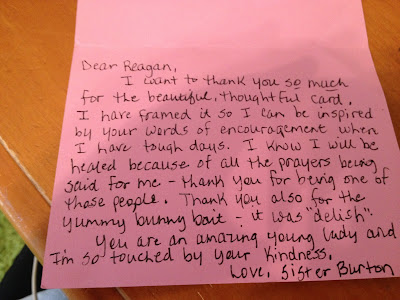 Dear Reagan,
I want to thank you so much
for the beautiful, thoughtful card.
I have framed it so I can be inspired
by your words of encouragement when
I have tough days. I know I will be
healed because of all the prayers being
said for me - thank you for being one of
those people. Thank you also for the
yummy bunny bait - it was "delish".
You are an amazing young lady and
I'm so touched by your kindness.
Love, Sister Burton